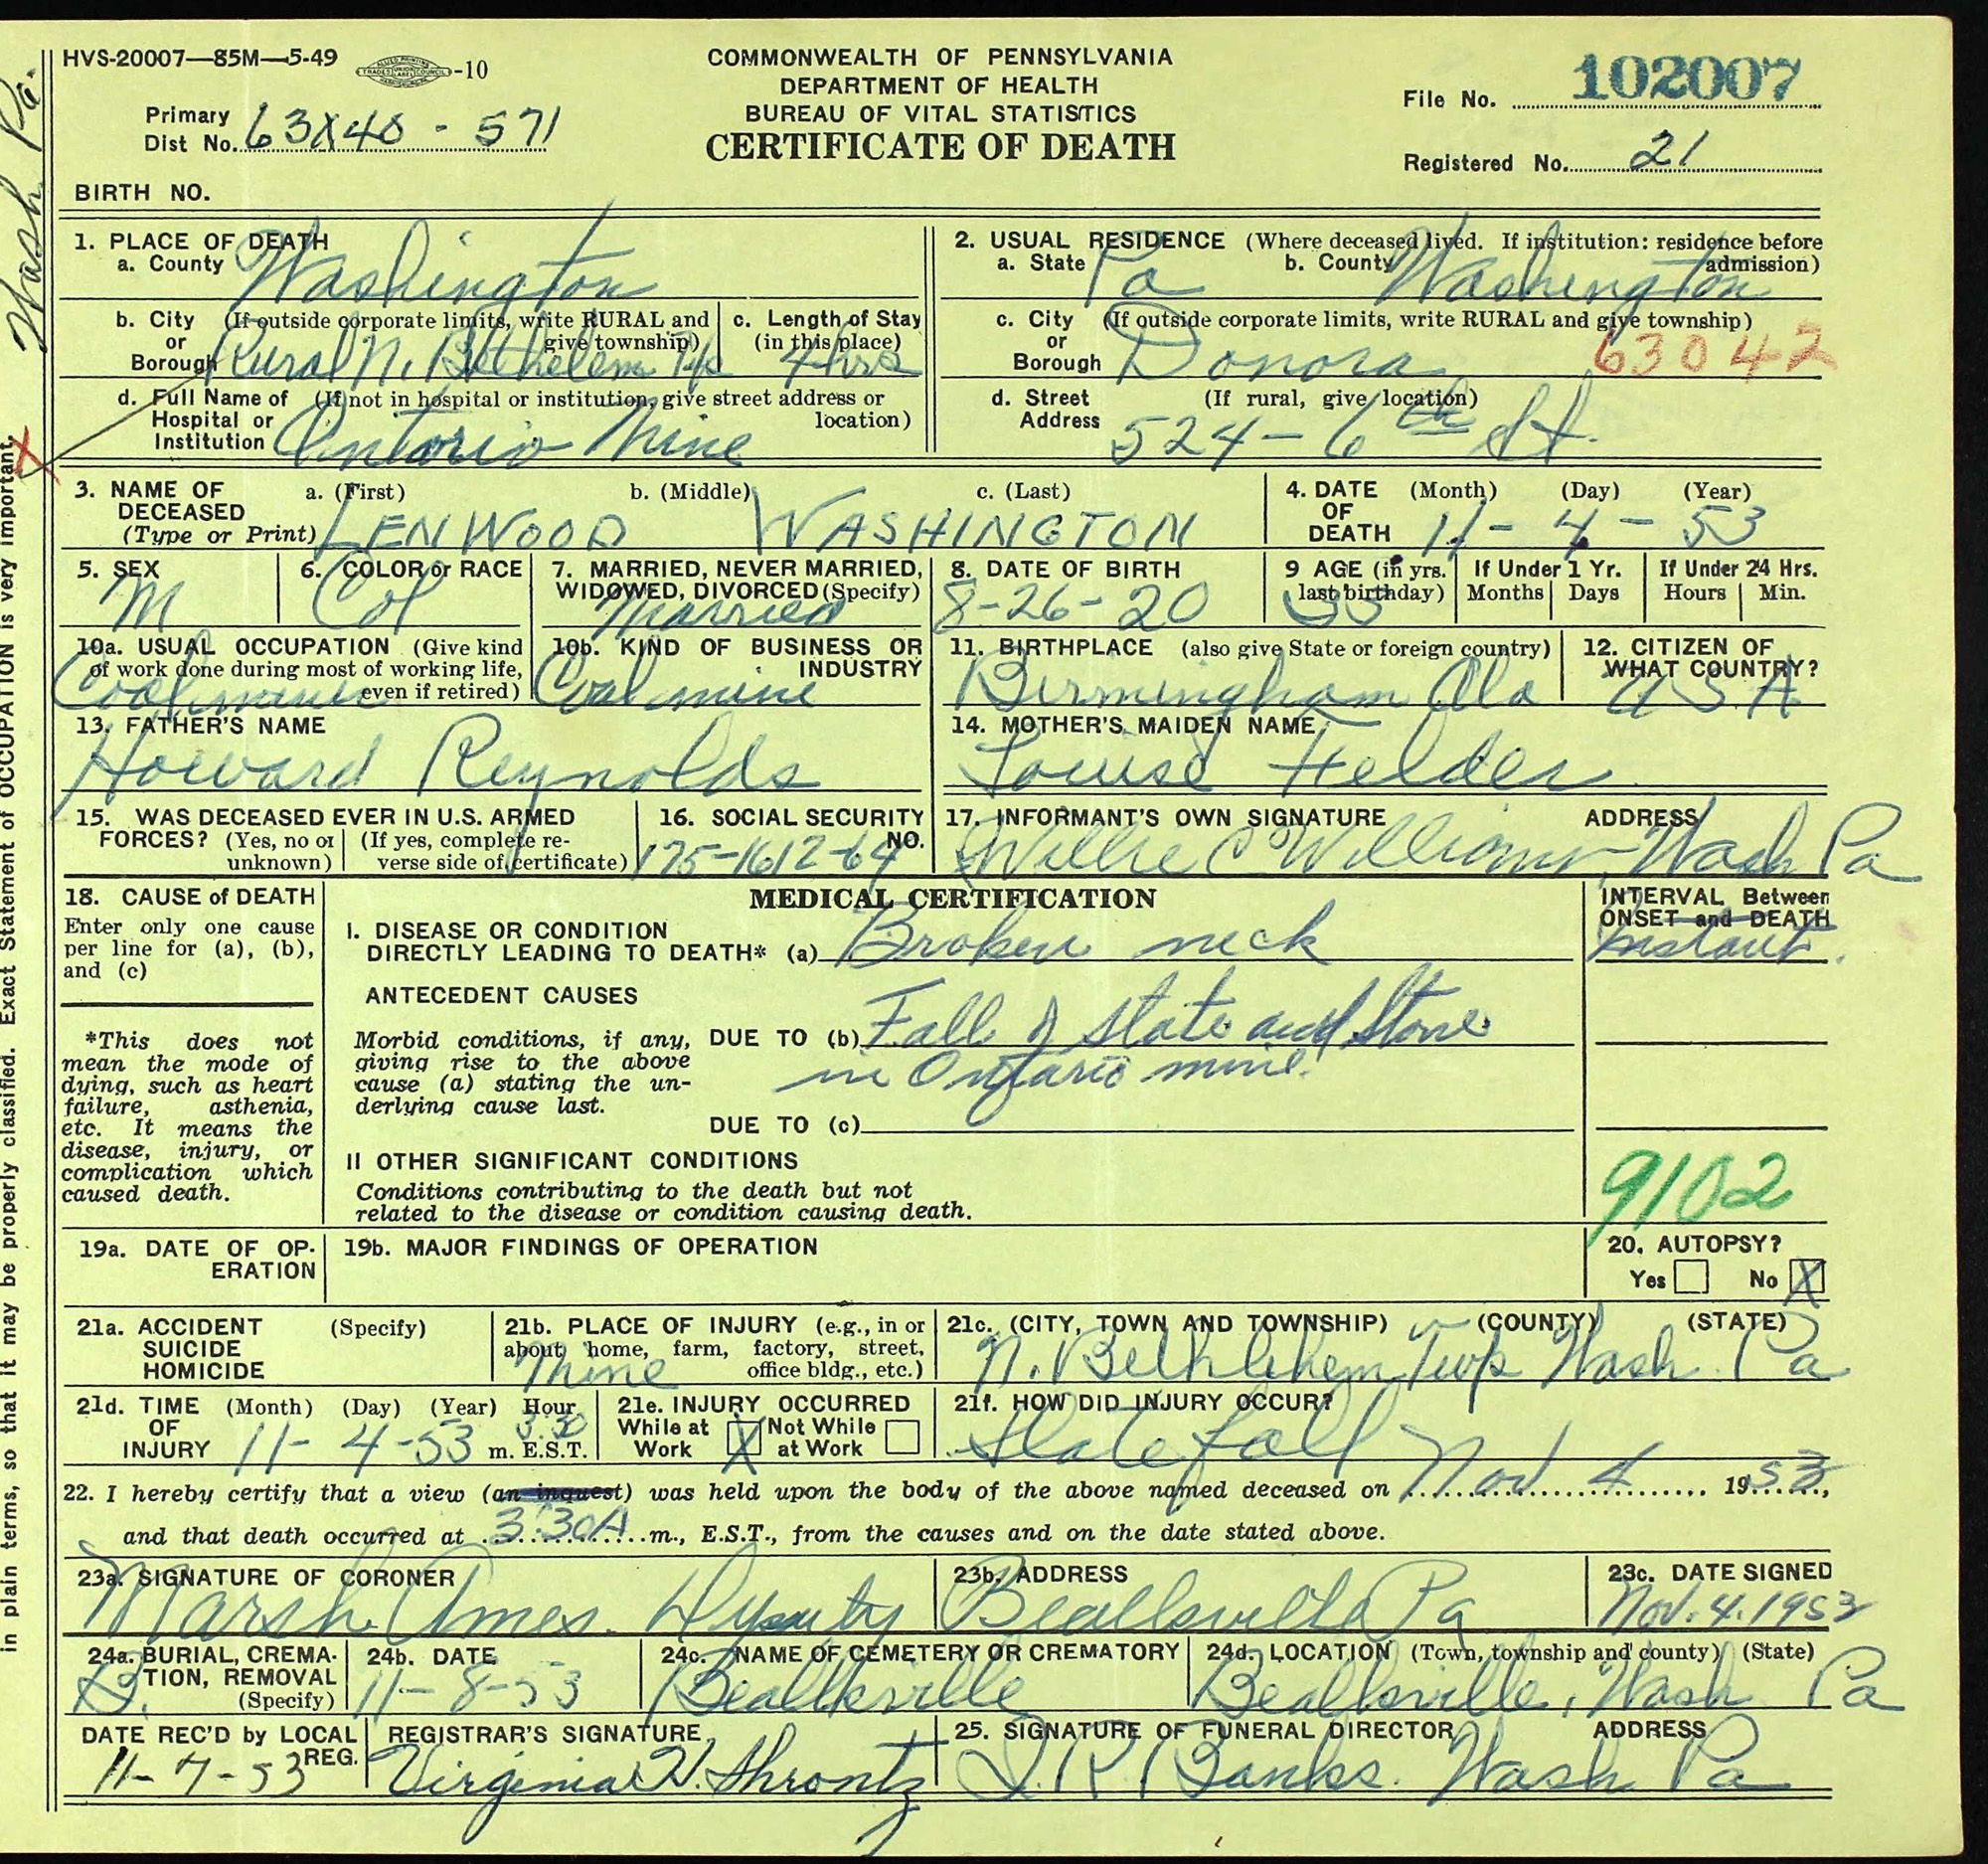 HVS-20007—85M—5-49
-10
COMMONWEALTH OF PENNSYLVANIA
DEPARTMENT OF HEALTH
BUREAU OF VITAL STATISTICS
CERTIFICATE OF DEATH
File No. 102007
Primary
Dist No. 63X40 - 571
Registered No. 21
BIRTH NO.
Wash Pa.
in plain terms, so that it may be properly classified. Exact Statement of OCCUPATION is very important.
1. PLACE OF DEATH
a. County Washington
b. City (If outside corporate limits, write RURAL and
or give township)
Borough Rural N. Bethelem Tp
c. Length of Stay
(in this place)
4 hrs
d. Full Name of (If not in hospital or institution, give street address or
Hospital or location)
Institution Ontario Mine
2. USUAL RESIDENCE (Where deceased lived. If institution: residence before
admission)
a. State Pa b. County Washington
c. City (If outside corporate limits, write RURAL and give township)
or
Borough Donora 63042
d. Street (If rural, give location)
Address 524-6th St.
3. NAME OF DECEASED
(Type or Print)
a. (First) b. (Middle) c. (Last)
LENWOOD WASHINGTON
4. DATE OF DEATH (Month) (Day) (Year)
11- 4 - 53
5. SEX
M
6. COLOR or RACE
Col
7. MARRIED, NEVER MARRIED,
WIDOWED, DIVORCED (Specify)
Married
8. DATE OF BIRTH
8-26-20
9 AGE (in yrs.
last birthday)
If Under 1 Yr.
Months Days
If Under 24 Hrs.
Hours Min.
10a. USUAL OCCUPATION (Give kind
of work done during most of working life,
even if retired)
Coal miner
10b. KIND OF BUSINESS OR
INDUSTRY
Coal mine
11. BIRTHPLACE (also give State or foreign country)
Birmingham Ala
12. CITIZEN OF
WHAT COUNTRY?
USA
13. FATHER'S NAME
Howard Reynolds
14. MOTHER'S MAIDEN NAME
Louise Helder
15. WAS DECEASED EVER IN U.S. ARMED
FORCES? (Yes, no or (If yes, complete re-
unknown) verse side of certificate)
16. SOCIAL SECURITY
NO.
175-1612-64
17. INFORMANT'S OWN SIGNATURE ADDRESS
Willie C Williams, Wash Pa
18. CAUSE of DEATH
Enter only one cause
per line for (a), (b),
and (c)
*This does not
mean the mode of
dying, such as heart
failure, asthenia,
etc. It means the
disease, injury, or
complication which
caused death.
MEDICAL CERTIFICATION
I. DISEASE OR CONDITION
DIRECTLY LEADING TO DEATH* (a) Broken neck
ANTECEDENT CAUSES
Morbid conditions, if any,
giving rise to the above
cause (a) stating the un-
derlying cause last.
DUE TO (b) Fall of slate and stone
in Ontario mine.
DUE TO (c)
II OTHER SIGNIFICANT CONDITIONS
Conditions contributing to the death but not
related to the disease or condition causing death.
INTERVAL Between
ONSET and DEATH
Instant.
9102
19a. DATE OF OP-
ERATION
19b. MAJOR FINDINGS OF OPERATION
20. AUTOPSY?
Yes No X
21a. ACCIDENT (Specify)
SUICIDE
HOMICIDE
21b. PLACE OF INJURY (e.g., in or
about home, farm, factory, street,
office bldg., etc.)
Mine
21c. (CITY, TOWN AND TOWNSHIP) (COUNTY) (STATE)
N. Bethlehem Twp Wash Pa
21d. TIME (Month) (Day) (Year) Hour
OF INJURY 11- 4-53 3:30 m. E.S.T.
21e. INJURY OCCURRED
While at Work X Not While at Work
21f. HOW DID INJURY OCCUR?
Slate fall
22. I hereby certify that a view (an inquest) was held upon the body of the above named deceased on Nov. 4 1953,
and that death occurred at 3:30A m., E.S.T., from the causes and on the date stated above.
23a. SIGNATURE OF CORONER
Marsh Ames. Deputy
23b. ADDRESS
Beallsville Pa
23c. DATE SIGNED
Nov. 4. 1953
24a. BURIAL, CREMA-
TION, REMOVAL
(Specify)
B.
24b. DATE
11-8-53
24c. NAME OF CEMETERY OR CREMATORY
Beallsville
24d. LOCATION (Town, township and county) (State)
Beallsville, Wash Pa
DATE REC'D by LOCAL
REG.
11-7-53
REGISTRAR'S SIGNATURE
Virginia H. Shrontz
25. SIGNATURE OF FUNERAL DIRECTOR ADDRESS
Banks. Wash Pa